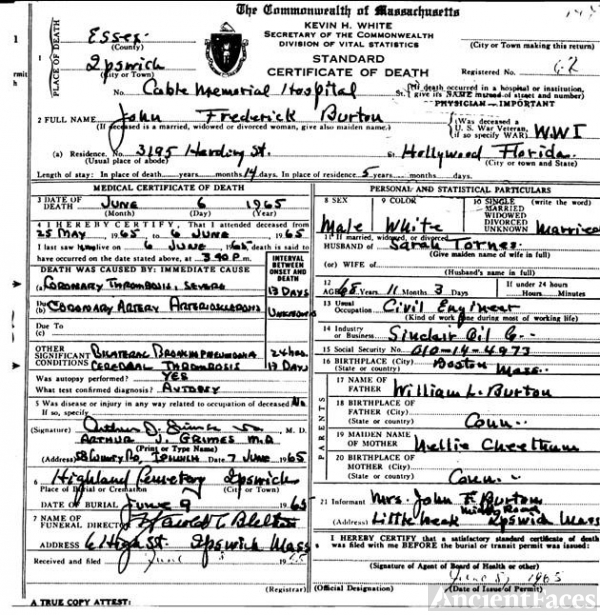 The Commonwealth of Massachusetts
KEVIN H. WHITE
SECRETARY OF THE COMMONWEALTH
DIVISION OF VITAL STATISTICS
STANDARD
CERTIFICATE OF DEATH
PLACE OF DEATH
Essex
(County)
Ipswich
(City or Town)
(City or Town making this return)
Registered No. 62
No. Cable Memorial Hospital St.
(If death occurred in a hospital or institution, give its NAME instead of street and number)
PHYSICIAN — IMPORTANT
2 FULL NAME John Frederick Burton
(If deceased is a married, widowed or divorced woman, give also maiden name.)
(Was deceased a U. S. War Veteran, if so specify WAR) WWI
(a) Residence. No. 3195 Harding St. Hollywood Florida
(Usual place of abode) (City or town and State)
Length of stay: In place of death.....years.....months 14 days. In place of residence 5 years.....months.....days.
MEDICAL CERTIFICATE OF DEATH
3 DATE OF DEATH June 6 1965
(Month) (Day) (Year)
4 I HEREBY CERTIFY, That I attended deceased from
25 MAY 1965 to 6 JUNE 1965
I last saw him alive on 6 JUNE 1965 death is said to
have occurred on the date stated above, at 3:40 P.m.
DEATH WAS CAUSED BY: IMMEDIATE CAUSE
INTERVAL BETWEEN ONSET AND DEATH
(a) CORONARY THROMBOSIS, SEVERE 13 DAYS
Due to (b) CORONARY ARTERY ARTERIOSCLEROSIS UNKNOWN
Due to (c)
OTHER SIGNIFICANT CONDITIONS
BILATERAL BRONCHOPNEUMONIA 24 hrs.
CEREBRAL THROMBOSIS 13 DAYS
Was autopsy performed? YES
What test confirmed diagnosis? AUTOPSY
5 Was disease or injury in any way related to occupation of deceased? No
If so, specify
(Signature) M. D.
ARTHUR J. GRIMES M.D.
(Print or Type Name)
(Address) IPSWICH Date 7 JUNE 1965
6 Highland Cemetery Ipswich
Place of Burial or Cremation (City or Town)
DATE OF BURIAL June 9 1965
7 NAME OF FUNERAL DIRECTOR
ADDRESS 6 High St. Ipswich Mass
Received and filed June 1965
(Registrar)
A TRUE COPY ATTEST:
PERSONAL AND STATISTICAL PARTICULARS
8 SEX Male
9 COLOR White
10 SINGLE MARRIED WIDOWED DIVORCED UNKNOWN (write the word) Married
11 If married, widowed, or divorced
HUSBAND of Sarah Tornes
(Give maiden name of wife in full)
(or) WIFE of
(Husband's name in full)
12 AGE 68 Years 11 Months 3 Days
If under 24 hours
Hours Minutes
13 Usual Occupation Civil Engineer
(Kind of work done during most of working life)
14 Industry or Business: Sinclair Oil Co.
15 Social Security No. 010-14-4973
16 BIRTHPLACE (City) Boston
(State or country) Mass.
PARENTS
17 NAME OF FATHER William L. Burton
18 BIRTHPLACE OF FATHER (City)
(State or country) Conn.
19 MAIDEN NAME OF MOTHER Nellie Cheethum
20 BIRTHPLACE OF MOTHER (City)
(State or country) Conn.
21 Informant Mrs. John F. Burton
(Address) Little Neck Ipswich Mass
I HEREBY CERTIFY that a satisfactory standard certificate of death
was filed with me BEFORE the burial or transit permit was issued:
(Signature of Agent of Board of Health or other)
June 8, 1965
(Official Designation) (Date of Issue of Permit)
AncientFaces